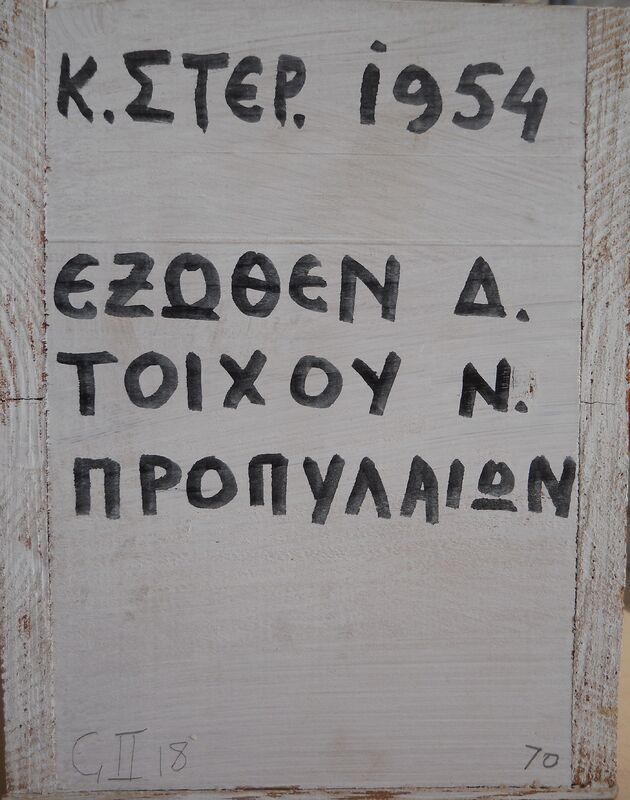 Κ. ΣΤΕΡ. 1954
ΕΖΩΘΕΝ Δ.
ΤΟΙΧΟΥ Ν.
ΠΡΟΠΥΛΑΙΩΝ
G II 18
70